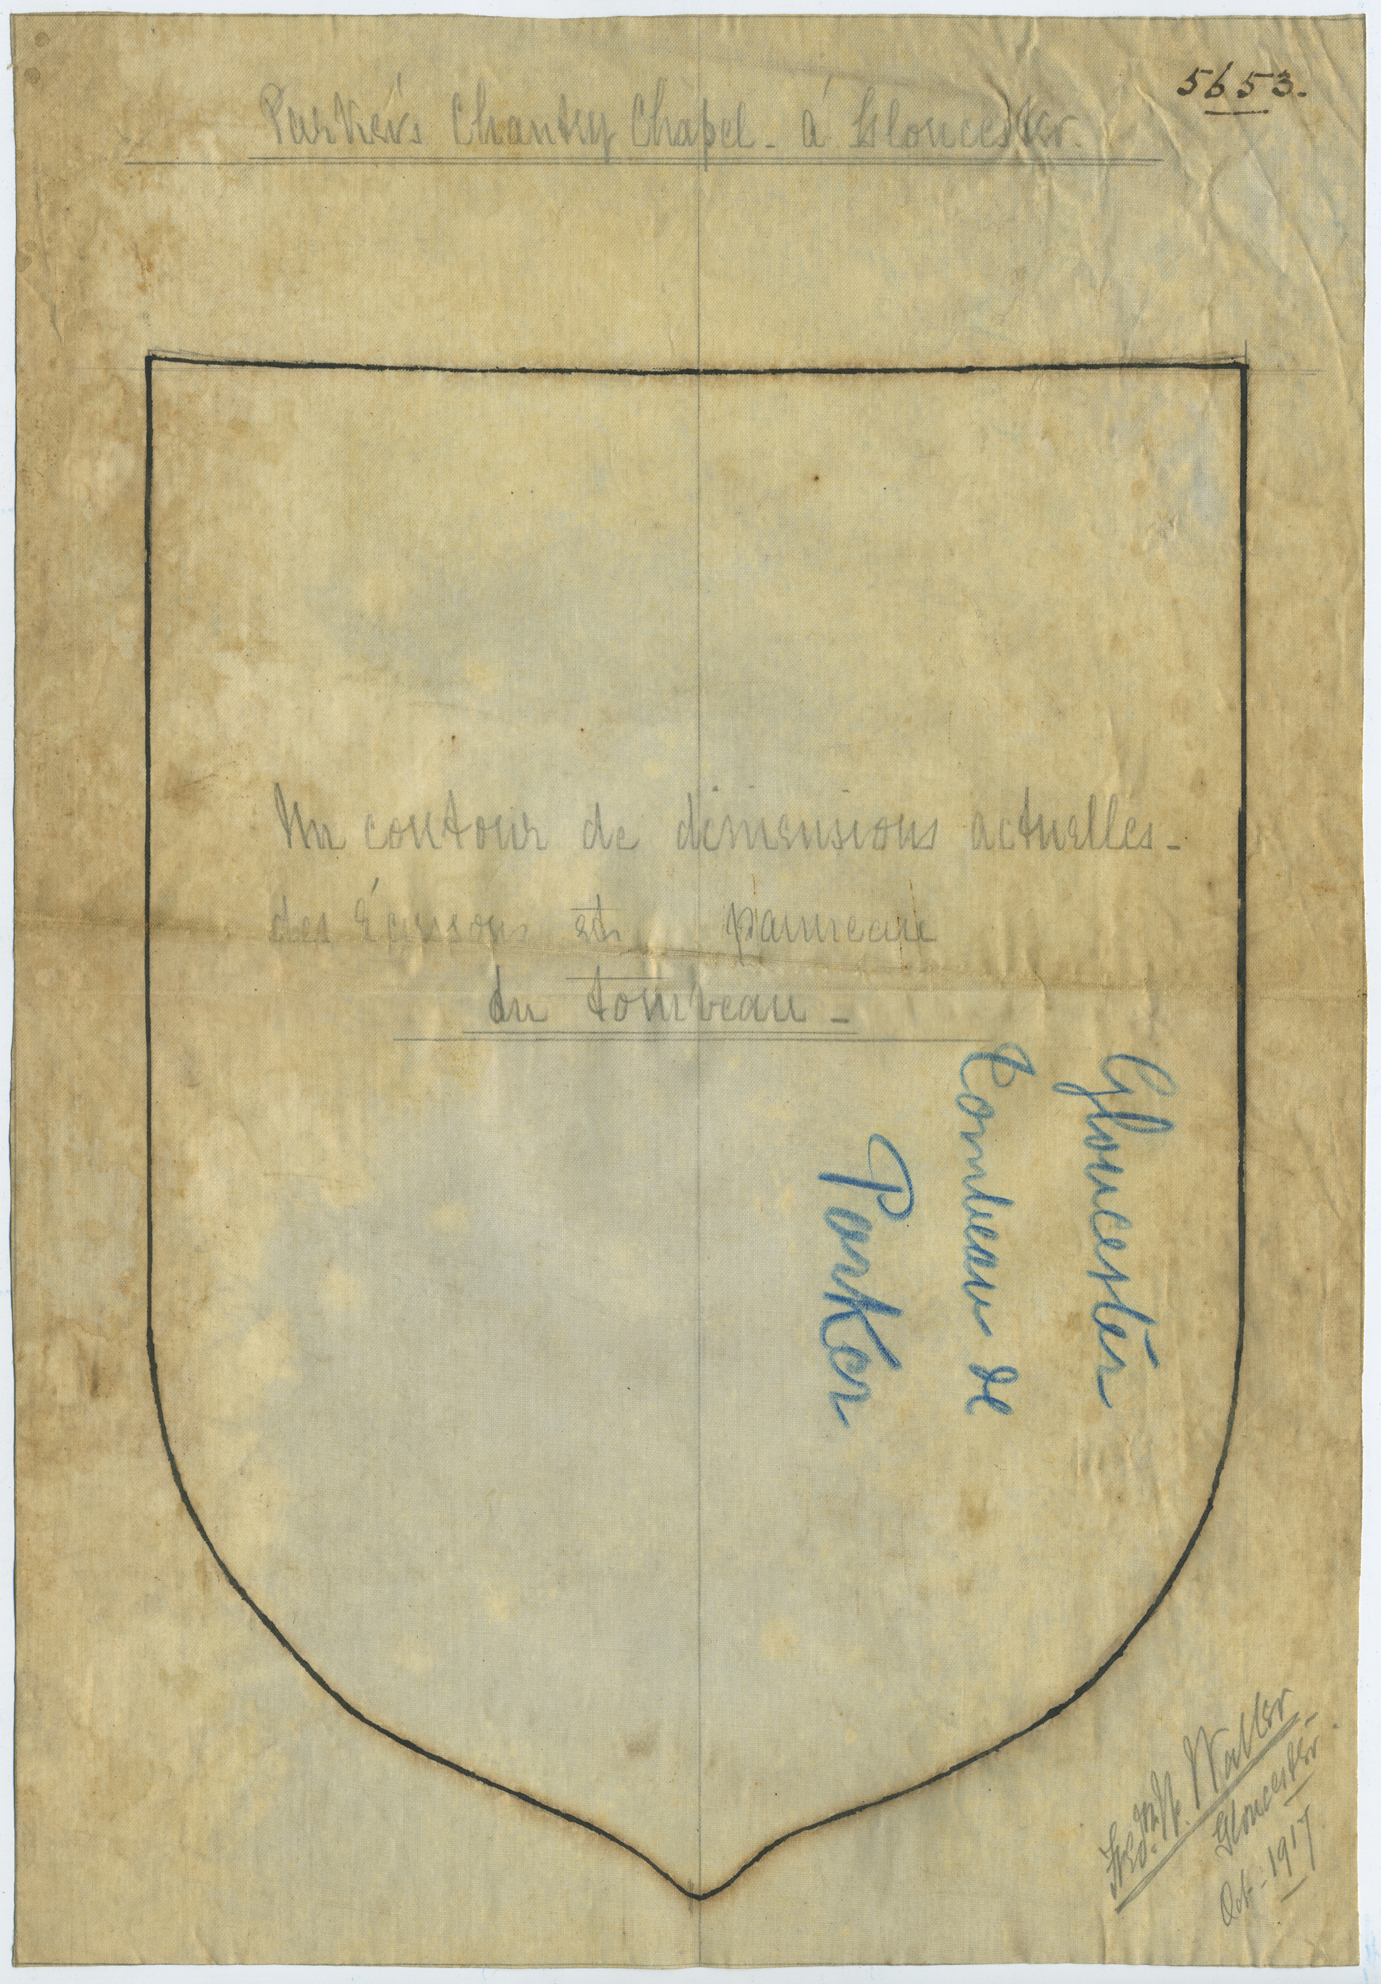 5653.
Parker's Chantry Chapel - á Gloucester.
Un contour de dimensions actuelles -
des Écussons panneau
du tombeau -
Gloucester
Tombeau de
Parker
W. Waller
Gloucester
Oct - 1917